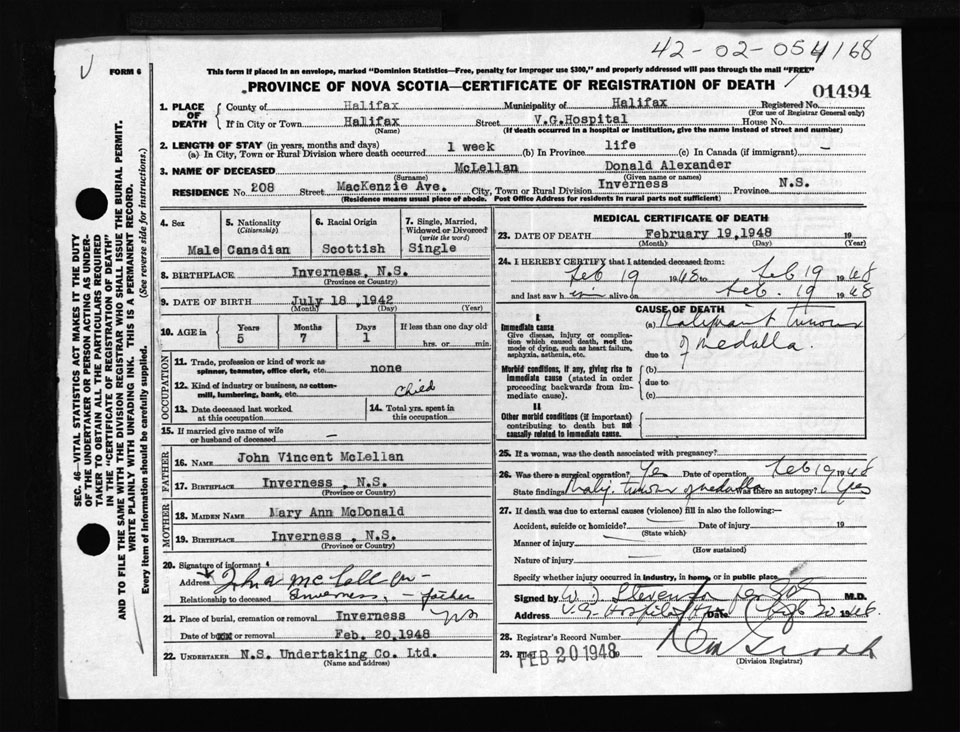 42-02-054168
FORM 6
This form if placed in an envelope, marked "Dominion Statistics—Free, penalty for improper use $300," and properly addressed will pass through the mail "FREE"
PROVINCE OF NOVA SCOTIA—CERTIFICATE OF REGISTRATION OF DEATH
01494
1. PLACE OF DEATH
County of Halifax Municipality of Halifax Registered No.
(For use of Registrar General only)
If in City or Town Halifax Street V.G.Hospital House No.
(Name) (If death occurred in a hospital or institution, give the name instead of street and number)
2. LENGTH OF STAY (in years, months and days)
(a) In City, Town or Rural Division where death occurred 1 week (b) In Province life (c) In Canada (if immigrant) —
3. NAME OF DECEASED McLellan Donald Alexander
(Surname) (Given name or names)
RESIDENCE No. 208 Street MacKenzie Ave. City, Town or Rural Division Inverness Province N.S.
(Residence means usual place of abode. Post Office Address for residents in rural parts not sufficient)
4. Sex
Male
5. Nationality
(Citizenship)
Canadian
6. Racial Origin
Scottish
7. Single, Married, Widowed or Divorced
(write the word)
Single
8. BIRTHPLACE Inverness, N.S.
(Province or Country)
9. DATE OF BIRTH July 18, 1942
(Month) (Day) (Year)
10. AGE in
Years Months Days If less than one day old
5 7 1 hrs. or min.
OCCUPATION
11. Trade, profession or kind of work as spinner, teamster, office clerk, etc. none
12. Kind of industry or business, as cotton-mill, lumbering, bank, etc. Child
13. Date deceased last worked at this occupation
14. Total yrs. spent in this occupation
15. If married give name of wife or husband of deceased —
FATHER
16. NAME John Vincent McLellan
17. BIRTHPLACE Inverness, N.S.
MOTHER
18. MAIDEN NAME Mary Ann McDonald
19. BIRTHPLACE Inverness, N.S.
(Province or Country)
20. Signature of informant
Address
Relationship to deceased Inverness, – father
21. Place of burial, cremation or removal Inverness NS
Date of burial or removal Feb. 20, 1948
22. UNDERTAKER N.S. Undertaking Co. Ltd.
(Name and address)
MEDICAL CERTIFICATE OF DEATH
23. DATE OF DEATH February 19, 1948 19
(Month) (Day) (Year)
24. I HEREBY CERTIFY that I attended deceased from:
Feb 19 1948 to Feb 19 1948
and last saw him alive on Feb. 19 1948
CAUSE OF DEATH
I
Immediate cause
Give disease, injury or complication which caused death, not the mode of dying, such as heart failure, asphyxia, asthenia, etc.
(a) Malignant tumour
of Medulla.
due to
Morbid conditions, if any, giving rise to immediate cause (stated in order proceeding backwards from immediate cause).
(b)
due to
(c)
II
Other morbid conditions (if important) contributing to death but not causally related to immediate cause.
25. If a woman, was the death associated with pregnancy?
26. Was there a surgical operation? Yes Date of operation Feb 19 1948
State findings Malig. tumour of medulla Was there an autopsy? Yes
27. If death was due to external causes (violence) fill in also the following:—
Accident, suicide or homicide? Date of injury 19
(State which)
Manner of injury
(How sustained)
Nature of injury
Specify whether injury occurred in industry, in home, or in public place.
Signed by M.D.
Address V.G. Hospital Date Feb 20 1948.
28. Registrar's Record Number
29. Filed FEB 20 1948 19
(Division Registrar)
SEC. 46—VITAL STATISTICS ACT MAKES IT THE DUTY
OF THE UNDERTAKER OR PERSON ACTING AS UNDER-
TAKER TO OBTAIN ALL THE PARTICULARS REQUIRED
IN THE "CERTIFICATE OF REGISTRATION OF DEATH"
AND TO FILE THE SAME WITH THE DIVISION REGISTRAR WHO SHALL ISSUE THE BURIAL PERMIT.
WRITE PLAINLY WITH UNFADING INK. THIS IS A PERMANENT RECORD.
Every item of information should be carefully supplied. (See reverse side for instructions.)